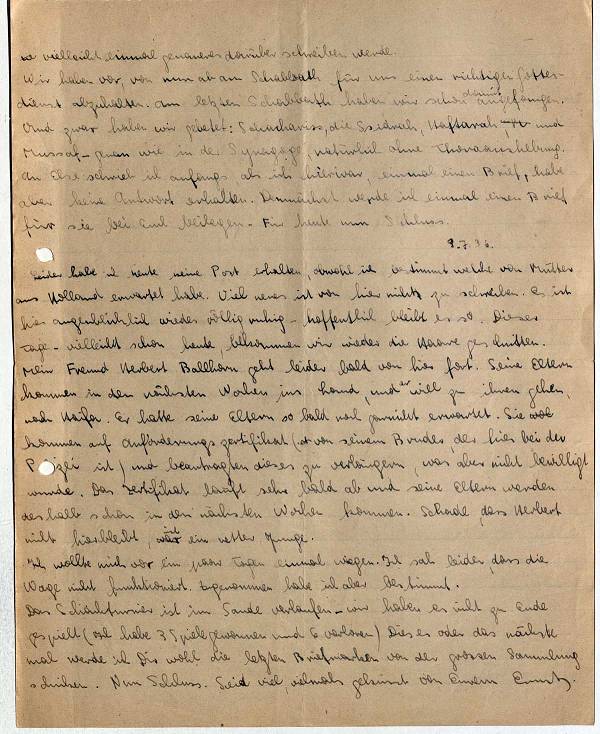 vielleicht einmal genaueres darüber schreiben werde.
Wir haben vor, von nun ab am Schabbath für uns einen richtigen Gottes-
dienst abzuhalten. Am letzten Schabbath haben wir schon damit angefangen.
Und zwar haben wir gebetet: Schachariss, die Ssidrah, Haftarah und
Mussaf - genau wie in der Synagoge, natürlich ohne Thoraaushebung.
An Else schrieb ich anfangs als ich hier war, einmal einen Brief, habe
aber keine Antwort erhalten. Demnächst werde ich einmal einen Brief
für sie bei Euch beilegen - Für heute nun Schluss.
9.7.36.
Leider habe ich heute keine Post erhalten obwohl ich bestimmt welche von Mutter
aus Holland erwartet habe. Viel neues ist von hier nicht zu schreiben. Es ist
hier augenblicklich wieder völlig ruhig - hoffentlich bleibt es so. Dieser
Tage - vielleicht schon heute, bekommen wir wieder die Haare geschnitten.
Mein Freund Herbert Ballhorn geht leider bald von hier fort. Seine Eltern
kommen in den nächsten Wochen ins Land, und er will zu ihnen gehen,
nach Haifa. Er hatte seine Eltern so bald noch garnicht erwartet. Sie
kommen auf Anforderungszertifikat (von seinem Bruder, der hier bei der
Polizei ist) und beantragten dieses zu verlängern, was aber nicht bewilligt
wurde. Das Zertifikat läuft sehr bald ab und seine Eltern werden
deshalb schon in den nächsten Wochen kommen. Schade, dass Herbert
nicht hierbleibt, ist ein netter Junge.
Ich wollte mich vor ein paar Tagen einmal wiegen. Ich sah leider, dass die
Wage nicht funktioniert. Zugenommen habe ich aber bestimmt.
Das Schachturnier ist im Sande verlaufen - wir haben es nicht zu Ende
gespielt (ich habe 3 Spiele gewonnen und 6 verloren) Dieses oder das nächste
mal werde ich Dir wohl die letzten Briefmarken von der grossen Sammlung
schicken. Nun Schluss. Seid viel, vielmals geküsst von Eurem Ernst.